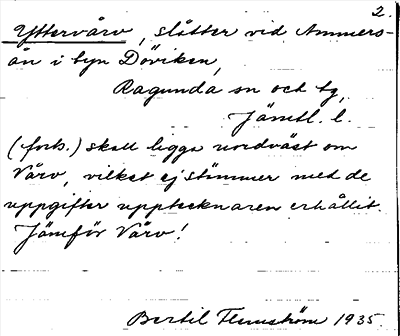 2.
Yttervårv, slåtter vid Ammers-
ån i byn Döviken,
Ragunda sn och tg,
Jämtl. l.
(forts.) skall ligga nordväst om
Vårv, vilket ej stämmer med de
uppgifter upptecknaren erhållit.
Jämför Vårv!
Bertil Flemström 1935.